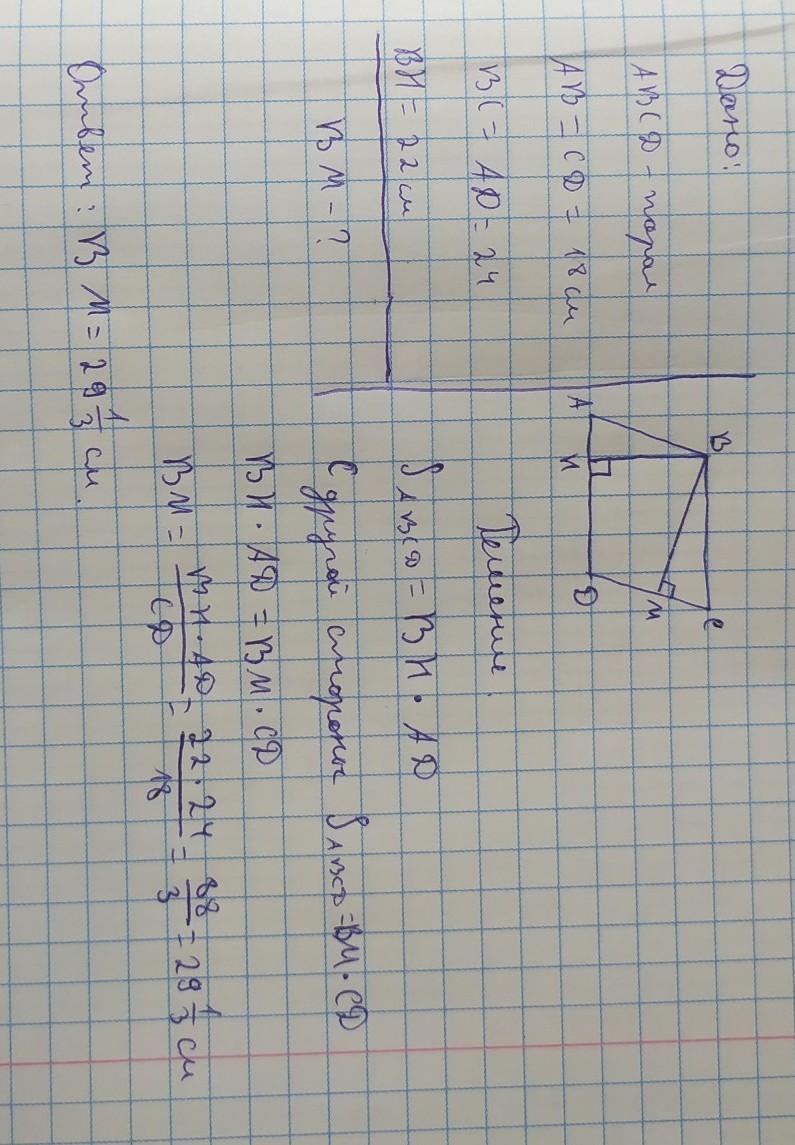 Дано:
ABCD - парал
AB = CD = 18 см
BC = AD = 24
BH = 22 см
BM - ?
B
C
A
H
D
M
Решение:
S ABCD = BH · AD
С другой стороны S ABCD = BM · CD
BH · AD = BM · CD
BM = BH · AD / CD = 22 · 24 / 18 = 88 / 3 = 29 1/3 см
Ответ: BM = 29 1/3 см.